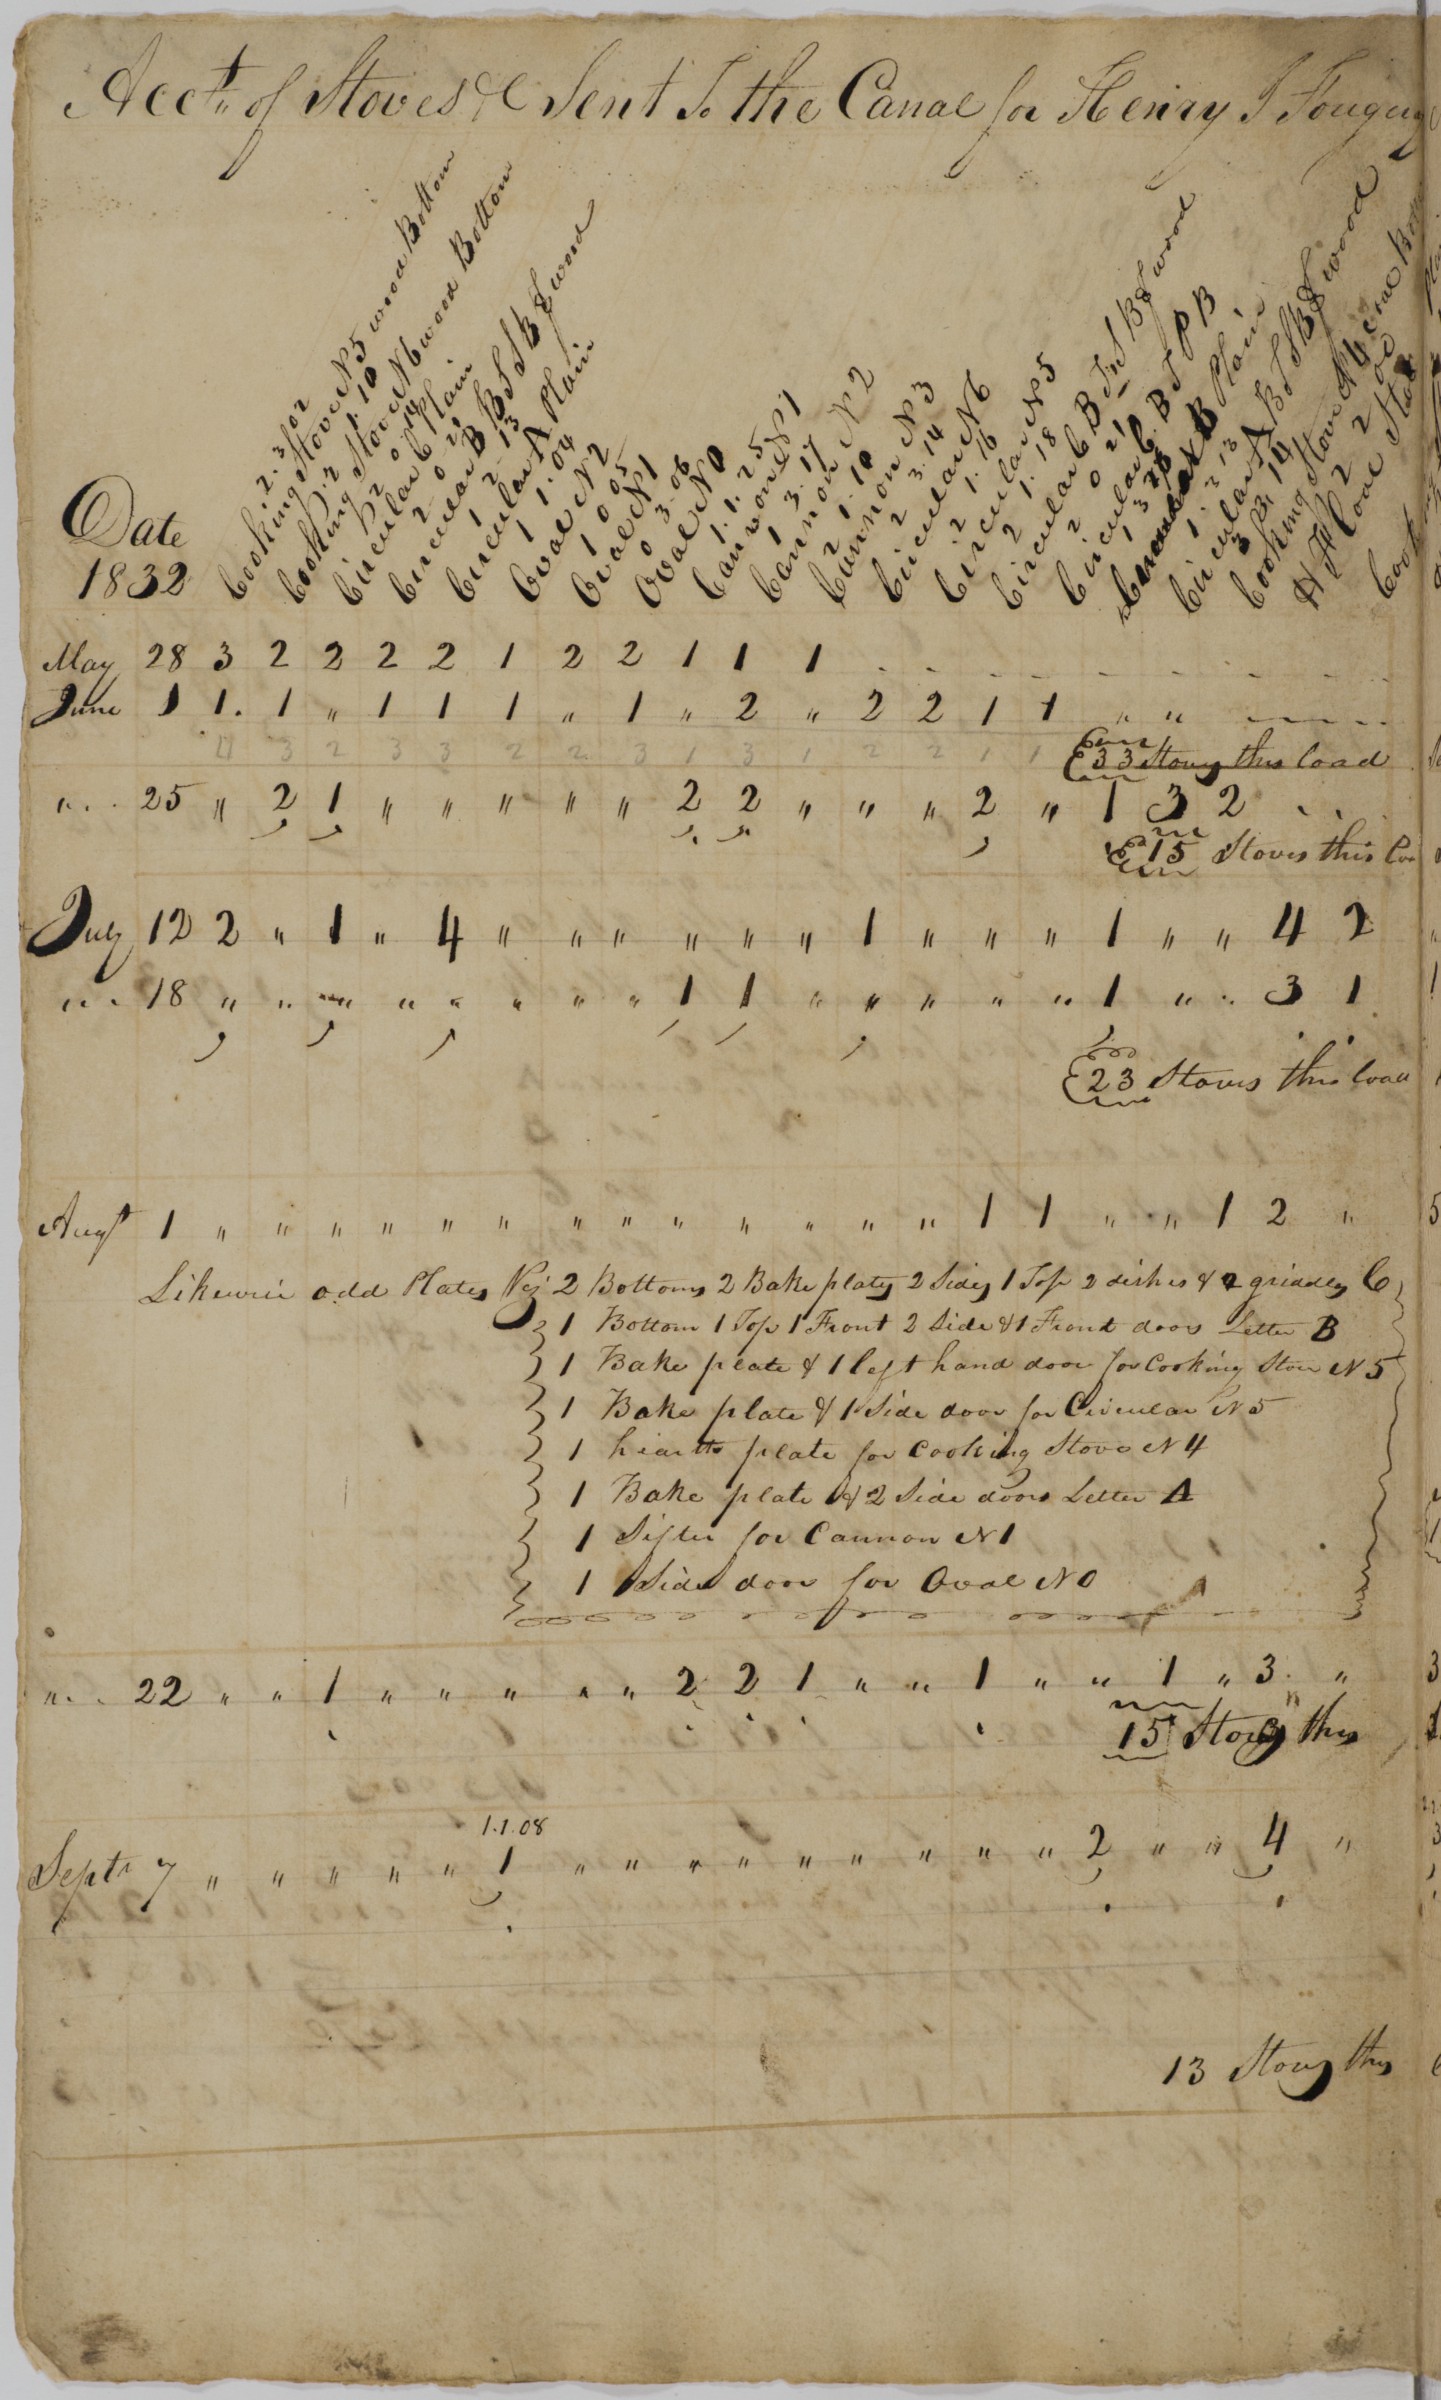 Acct. of Stoves &C Sent To the Canal for Henry J
Date
1832
2.3.02
Cooking Stove N 5 wood Bottom
2.1.10
Cooking Stove N 6 wood Bottom
2 0 14
Circular C Plain
2 0 21
Circular B B T S B & wood
1 2 13
Circular A Plain
1 1.04
Oval N 2
1 0 5
Oval N 1
0 3.06
Oval N 0
1.1.25
Cannon N 1
1 3.17
Cannon N 2
2 1.10
Cannon N 3
2 3.14
Circular N 6
2 1.16
Circular N 5
2 1.18
Circular C B T S B & wood
2 0 21
Circular C B T P B
1 3
Circular B Plain
1.3 13
Circular A B T S B & wood
3 3.14
Cooking Stove N 4 Coal
2 2 00
H Flone Stove
May 28 3 2 2 2 2 1 2 2 1 1 1 . . . . . . . . .
June 1 1. 1 " 1 1 1 " 1 " 2 " 2 2 1 1 " "
4 3 2 3 3 2 2 3 1 3 1 2 2 1 1 33 Stoves this load
" 25 " 2 1 " " " " " 2 2 " " " 2 " 1 3 2 . .
15 Stoves this
July 12 2 " 1 " 4 " " " " " " 1 " " " 1 " " 4 2
" 18 " " " " " " " " 1 1 " " " " " 1 " " 3 1
23 Stoves this load
Augt 1 " " " " " " " " " " " " " 1 1 " " 1 2 "
Likewise odd Plates Viz 2 Bottoms 2 Bake plates 2 Sides 1 Top 2 dishes & 2 griddles C
1 Bottom 1 Top 1 Front 2 Side & 1 Front door Letter B
1 Bake plate & 1 left hand door for Cooking Stove N 5
1 Bake plate & 1 Side door for Circular N 5
1 hearth plate for Cooking Stove N 4
1 Bake plate & 2 Side doors Letter A
1 Sifter for Cannon N 1
1 Side door for Oval N 0
" 22 " " 1 " " " " " 2 2 1 " " 1 " " 1 " 3 "
15 Stoves this
1.1.08
Septr 7 " " " " " 1 " " " " " " " " " 2 " " 4 "
13 Stoves this